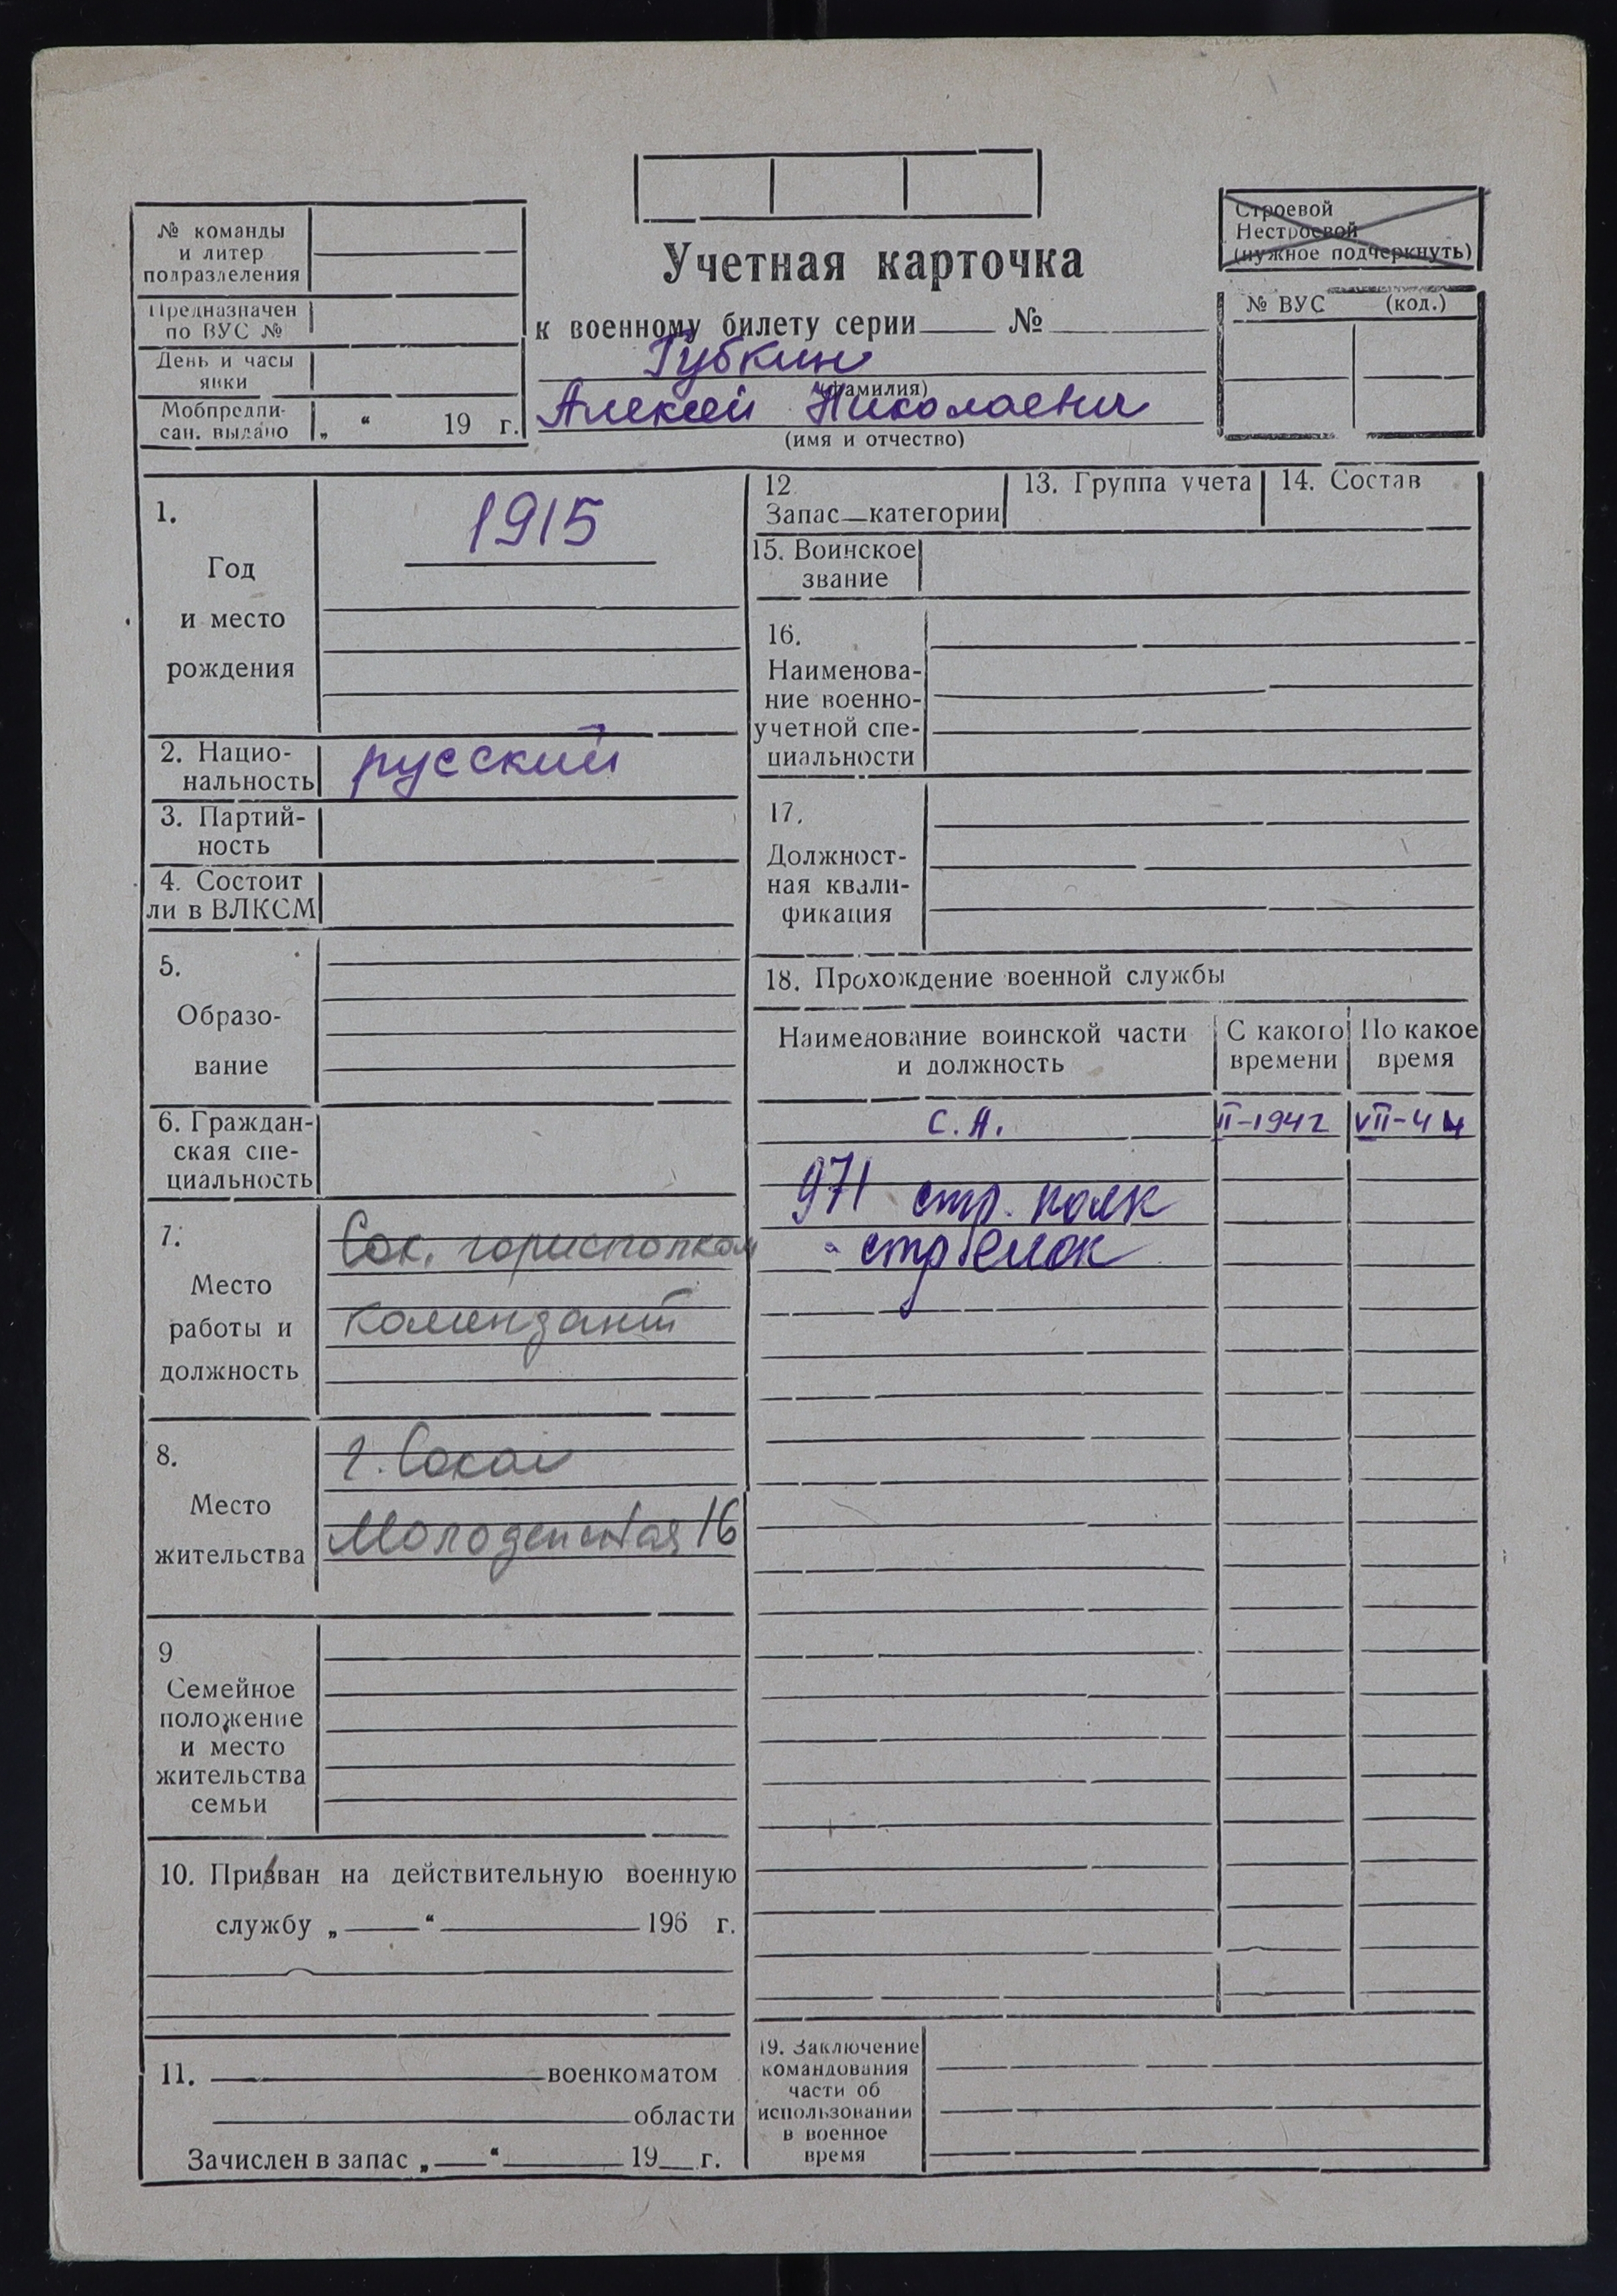 № команды
и литер
подразделения
Предназначен
по ВУС №
День и часы
явки
Мобпредпи-
сан. выдано „ “ 19 г.
Учетная карточка
к военному билету серии №
Губкин
(фамилия)
Алексей Николаевич
(имя и отчество)
Строевой
Нестроевой
(нужное подчеркнуть)
№ ВУС (код.)
1.
1915
Год
и место
рождения
2. Нацио-
нальность
русский
3. Партий-
ность
4. Состоит
ли в ВЛКСМ
5.
Образо-
вание
6. Граждан-
ская спе-
циальность
7.
Место
работы и
должность
Сок. горисполком
комендант
8.
Место
жительства
г. Сокол
Молодежная 16
9
Семейное
положение
и место
жительства
семьи
10. Призван на действительную военную
службу „ “ 196 г.
11. военкоматом
области
Зачислен в запас „ “ 19 г.
12
Запас—категории
13. Группа учета
14. Состав
15. Воинское
звание
16.
Наименова-
ние военно-
учетной спе-
циальности
17.
Должност-
ная квали-
фикация
18. Прохождение военной службы
Наименование воинской части
и должность
С какого
времени
По какое
время
С.А. II-1942 VII-44
971 стр. полк
- стрелок
19. Заключение
командования
части об
использовании
в военное
время